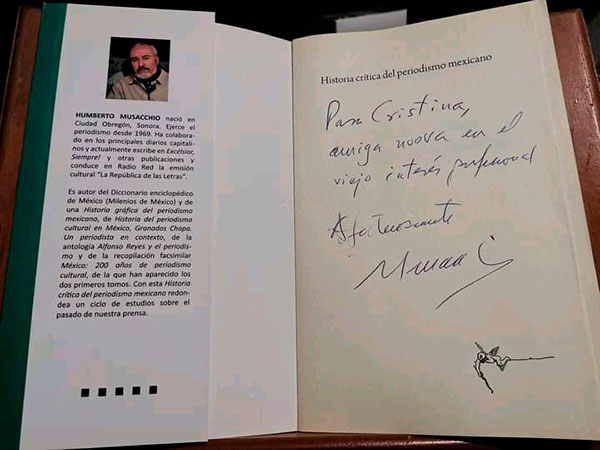 HUMBERTO MUSACCHIO nació en
Ciudad Obregón, Sonora. Ejerce el
periodismo desde 1969. Ha colabora-
do en los principales diarios capitali-
nos y actualmente escribe en Excélsior,
Siempre! y otras publicaciones y
conduce en Radio Red la emisión
cultural "La República de las Letras".
Es autor del Diccionario enciclopédico
de México (Milenios de México) y de
una Historia gráfica del periodismo
mexicano, de Historia del periodismo
cultural en México, Granados Chapa.
Un periodista en contexto, de la
antología Alfonso Reyes y el periodis-
mo y de la recopilación facsimilar
México: 200 años de periodismo
cultural, de la que han aparecido los
dos primeros tomos. Con esta Historia
crítica del periodismo mexicano redon-
dea un ciclo de estudios sobre el
pasado de nuestra prensa.
Historia crítica del periodismo mexicano
Para Cristina,
amiga nueva en el
viejo interés profesional
Afectuosamente